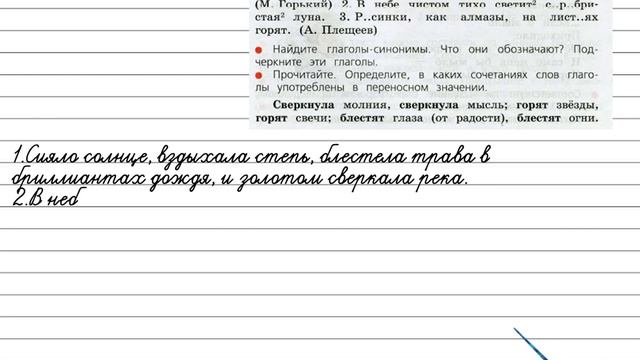 (М. Горький) 2. В небе чистом тихо светит² с..р..бри-
стая² луна. 3. Р..синки, как алмазы, на лист..ях
горят. (А. Плещеев)
● Найдите глаголы-синонимы. Что они обозначают? Под-
черкните эти глаголы.
● Прочитайте. Определите, в каких сочетаниях слов глаго-
лы употреблены в переносном значении.
Сверкнула молния, сверкнула мысль; горят звёзды,
горят свечи; блестят глаза (от радости), блестят огни.
1.Сияло солнце, вздыхала степь, блестела трава в
бриллиантах дождя, и золотом сверкала река.
2.В неб